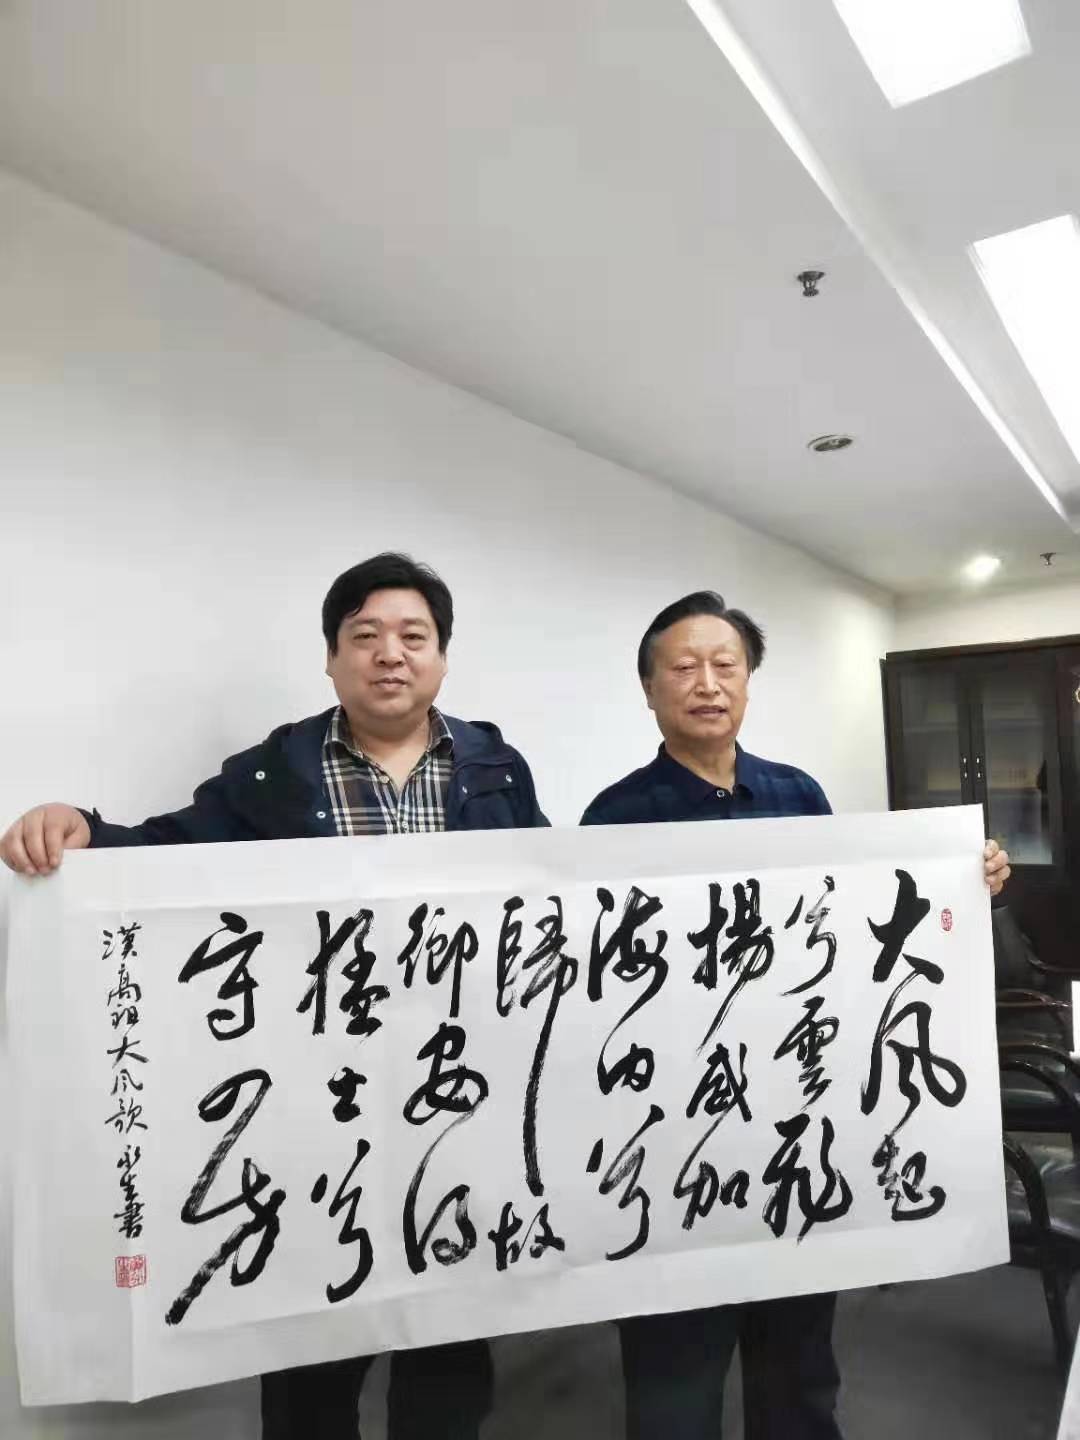 大风起
兮雲飛
揚威加
海内兮
歸故
鄉安得
猛士兮
守四方
漢高祖大风歌 永生書